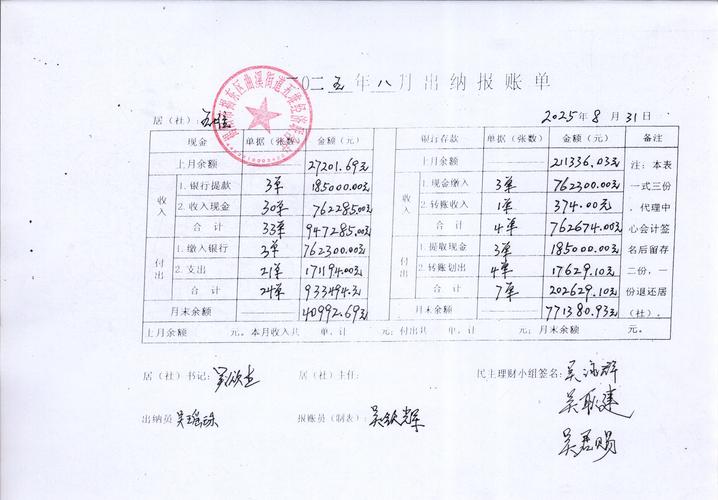 二〇二五年八月出纳报账单
居（社）： 2025年8月31日
现金 单据（张数） 金额（元） 银行存款 单据（张数） 金额（元） 备注
上月余额 27201.69元 上月余额 211336.03元
收入 1.银行提款 3单 185000.00元 收入 1.现金缴入 3单 762300.00元
2.收入现金 30单 762285.00元 2.转账收入 1单 374.00元
合计 33单 947285.00元 合计 4单 762674.00元
付出 1.缴入银行 3单 762300.00元 付出 1.提取现金 3单 185000.00元
2.支出 21单 171194.00元 2.转账划出 4单 17629.10元
合计 24单 933494元 合计 7单 202629.10元
月末余额 40992.69元 月末余额 771380.93元
注：本表一式三份，代理中心会计签名后留存二份，一份退还居（社）。
上月余额 元。本月收入共 单，计 元；付出共 单，计 元；月末余额 元。
居（社）书记： 居（社）主任： 民主理财小组签名：
出纳员 报账员（制表）：